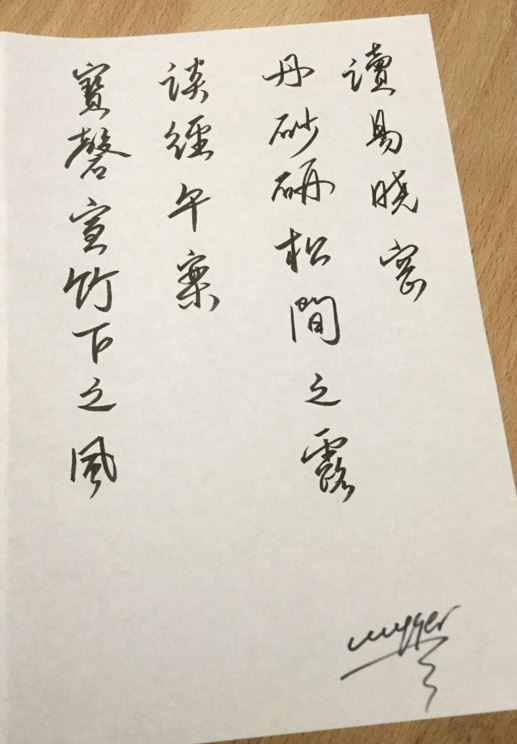 讀易曉窗
丹砂研松間之露
談經午案
寶磬宣竹下之風